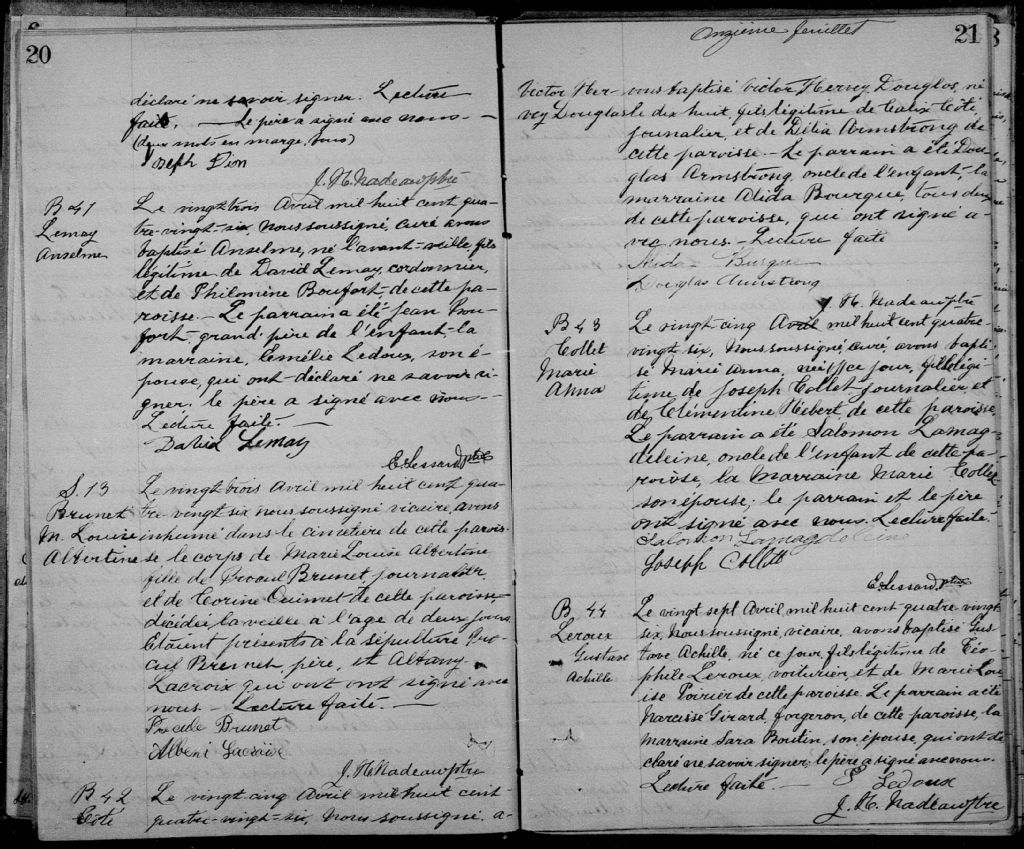 20
déclaré ne savoir signer. Lecture
faite. — Le père a signé avec nous —
(deux mots en marge, bons)
Joseph Dion
J. H. Nadeau ptre
B 41
Lemay
Anselme
Le vingt trois Avril mil huit cent qua-
tre-vingt-six, Nous soussigné, curé avons
baptisé Anselme, né l'avant-veille, fils
légitime de David Lemay, cordonnier,
et de Philomène Boufort de cette pa-
roisse. — Le parrain a été Jean Bou-
fort grand-père de l'enfant, la
marraine, Emélie Ledoux, son é-
pouse, qui ont déclaré ne savoir si-
gner. le père a signé avec nous —
Lecture faite. —
David Lemay
E. Lessard ptre
S. 13
Brunet
M. Louise
Albertine
Le vingt trois Avril mil huit cent qua-
tre-vingt six nous soussigné vicaire, avons
inhumé dans le cimetière de cette parois-
se le corps de Marie Louise Albertine
fille de Brunet, journalier,
et de Corine Ouimet de cette paroisse
décédée la veille à l'age de deux jours
Etaient présents à la sépulture Pro-
cul Brunet père, et Albany
Lacroix qui ont ont signé avec
nous — Lecture faite. —
Procule Brunet
Alberi
J. H. Nadeau ptre
B 42
Côté
Le vingt cinq Avril mil huit cent
quatre-vingt-six, Nous soussigné, a-
Onzième feuillet
21
Victor Her-
vey Douglas
vous baptisé Victor Hervey Douglas, né
le dix huit, fils légitime de Calix Côté
journalier, et de Délia Armstrong de
cette paroisse. — Le parrain a été Dou-
glas Armstrong, oncle de l'enfant, la
marraine Alida Bourque, tous deux
de cette paroisse, qui ont signé a-
vec nous. — Lecture faite
Alida Burque
Douglas Armstrong
J. H. Nadeau ptre
B 43
Collet
Marie
Anna
Le vingt-cinq Avril mil huit cent quatre-
vingt-six, Nous soussigné, curé, avons bapti-
sé Marie Anna, née ce jour, fille légi-
time de Joseph Collet journalier et
de Clémentine Hébert de cette paroisse.
Le parrain a été Salomon Lamag-
deleine, oncle de l'enfant de cette pa-
roisse, la Marraine Marie Collet
son épouse; le parrain et le père
ont signé avec nous. Lecture faite.
Salomon Lamagdeleine
Joseph Collett
E. Lessard ptre
B. 44
Leroux
Gustave
Achille
Le vingt sept Avril mil huit cent quatre vingt
six, Nous soussigné, vicaire, avons baptisé Gus-
tave Achille, né ce jour, fils légitime de Téo-
phile Leroux, voiturier, et de Marie Lou-
ise Poirier de cette paroisse. Le parrain a été
Narcisse Girard, forgeron, de cette paroisse, la
marraine Sara Boutin, son épouse, qui ont dé-
claré ne savoir signer; le père a signé avec nous.
Lecture faite. —
E Ledoux
J. H. Nadeau ptre